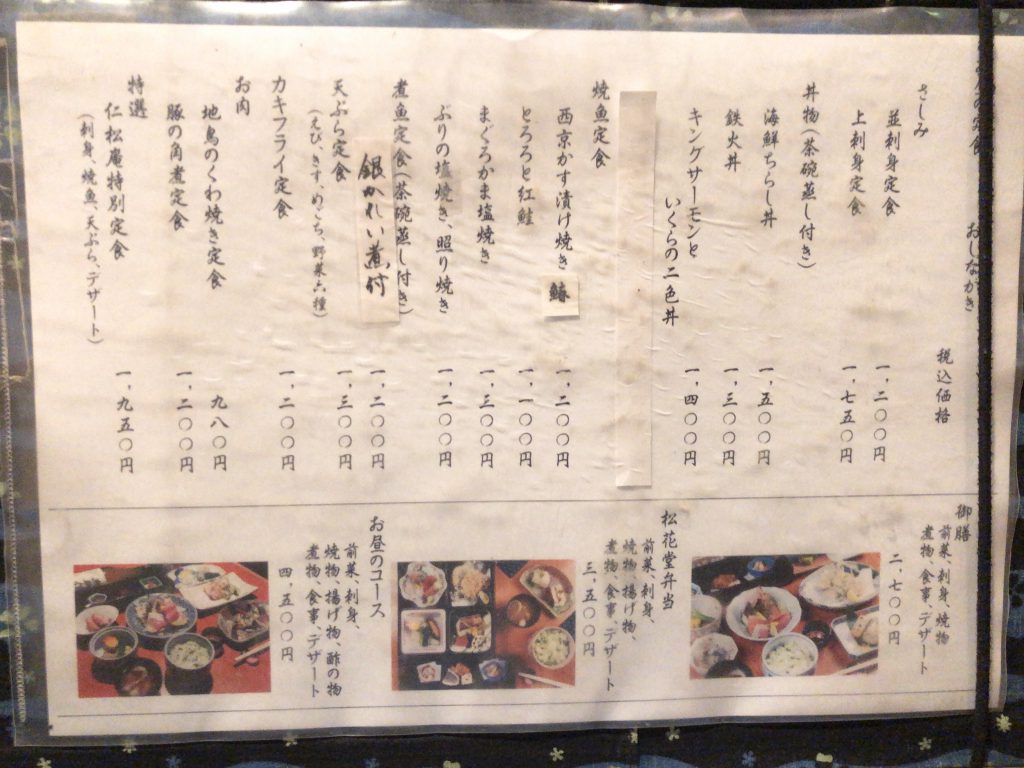 の定食
おしながき
税込価格
さしみ
並刺身定食 一、二〇〇円
上刺身定食 一、七五〇円
丼物(茶碗蒸し付き)
海鮮ちらし丼 一、五〇〇円
鉄火丼 一、三〇〇円
キングサーモンと
いくらの二色丼 一、四〇〇円
焼魚定食
西京かす漬け焼き 鰆 一、二〇〇円
とろろと紅鮭 一、一〇〇円
まぐろかま塩焼き 一、三〇〇円
ぶりの塩焼き、照り焼き 一、二〇〇円
煮魚定食(茶碗蒸し付き) 一、二〇〇円
銀かれい煮付
天ぷら定食 一、三〇〇円
(えび、きす、めごち、野菜六種)
カキフライ定食 一、二〇〇円
お肉
地鳥のくわ焼き定食 九八〇円
豚の角煮定食 一、二〇〇円
特選
仁松庵特別定食 一、九五〇円
(刺身、焼魚、天ぷら、デザート)
御膳
前菜、刺身、焼物
煮物、食事、デザート
二、七〇〇円
松花堂弁当
前菜、刺身、
焼物、揚げ物、
煮物、食事、デザート
三、五〇〇円
お昼のコース
前菜、刺身、
焼物、揚げ物、酢の物
煮物、食事、デザート
四、五〇〇円